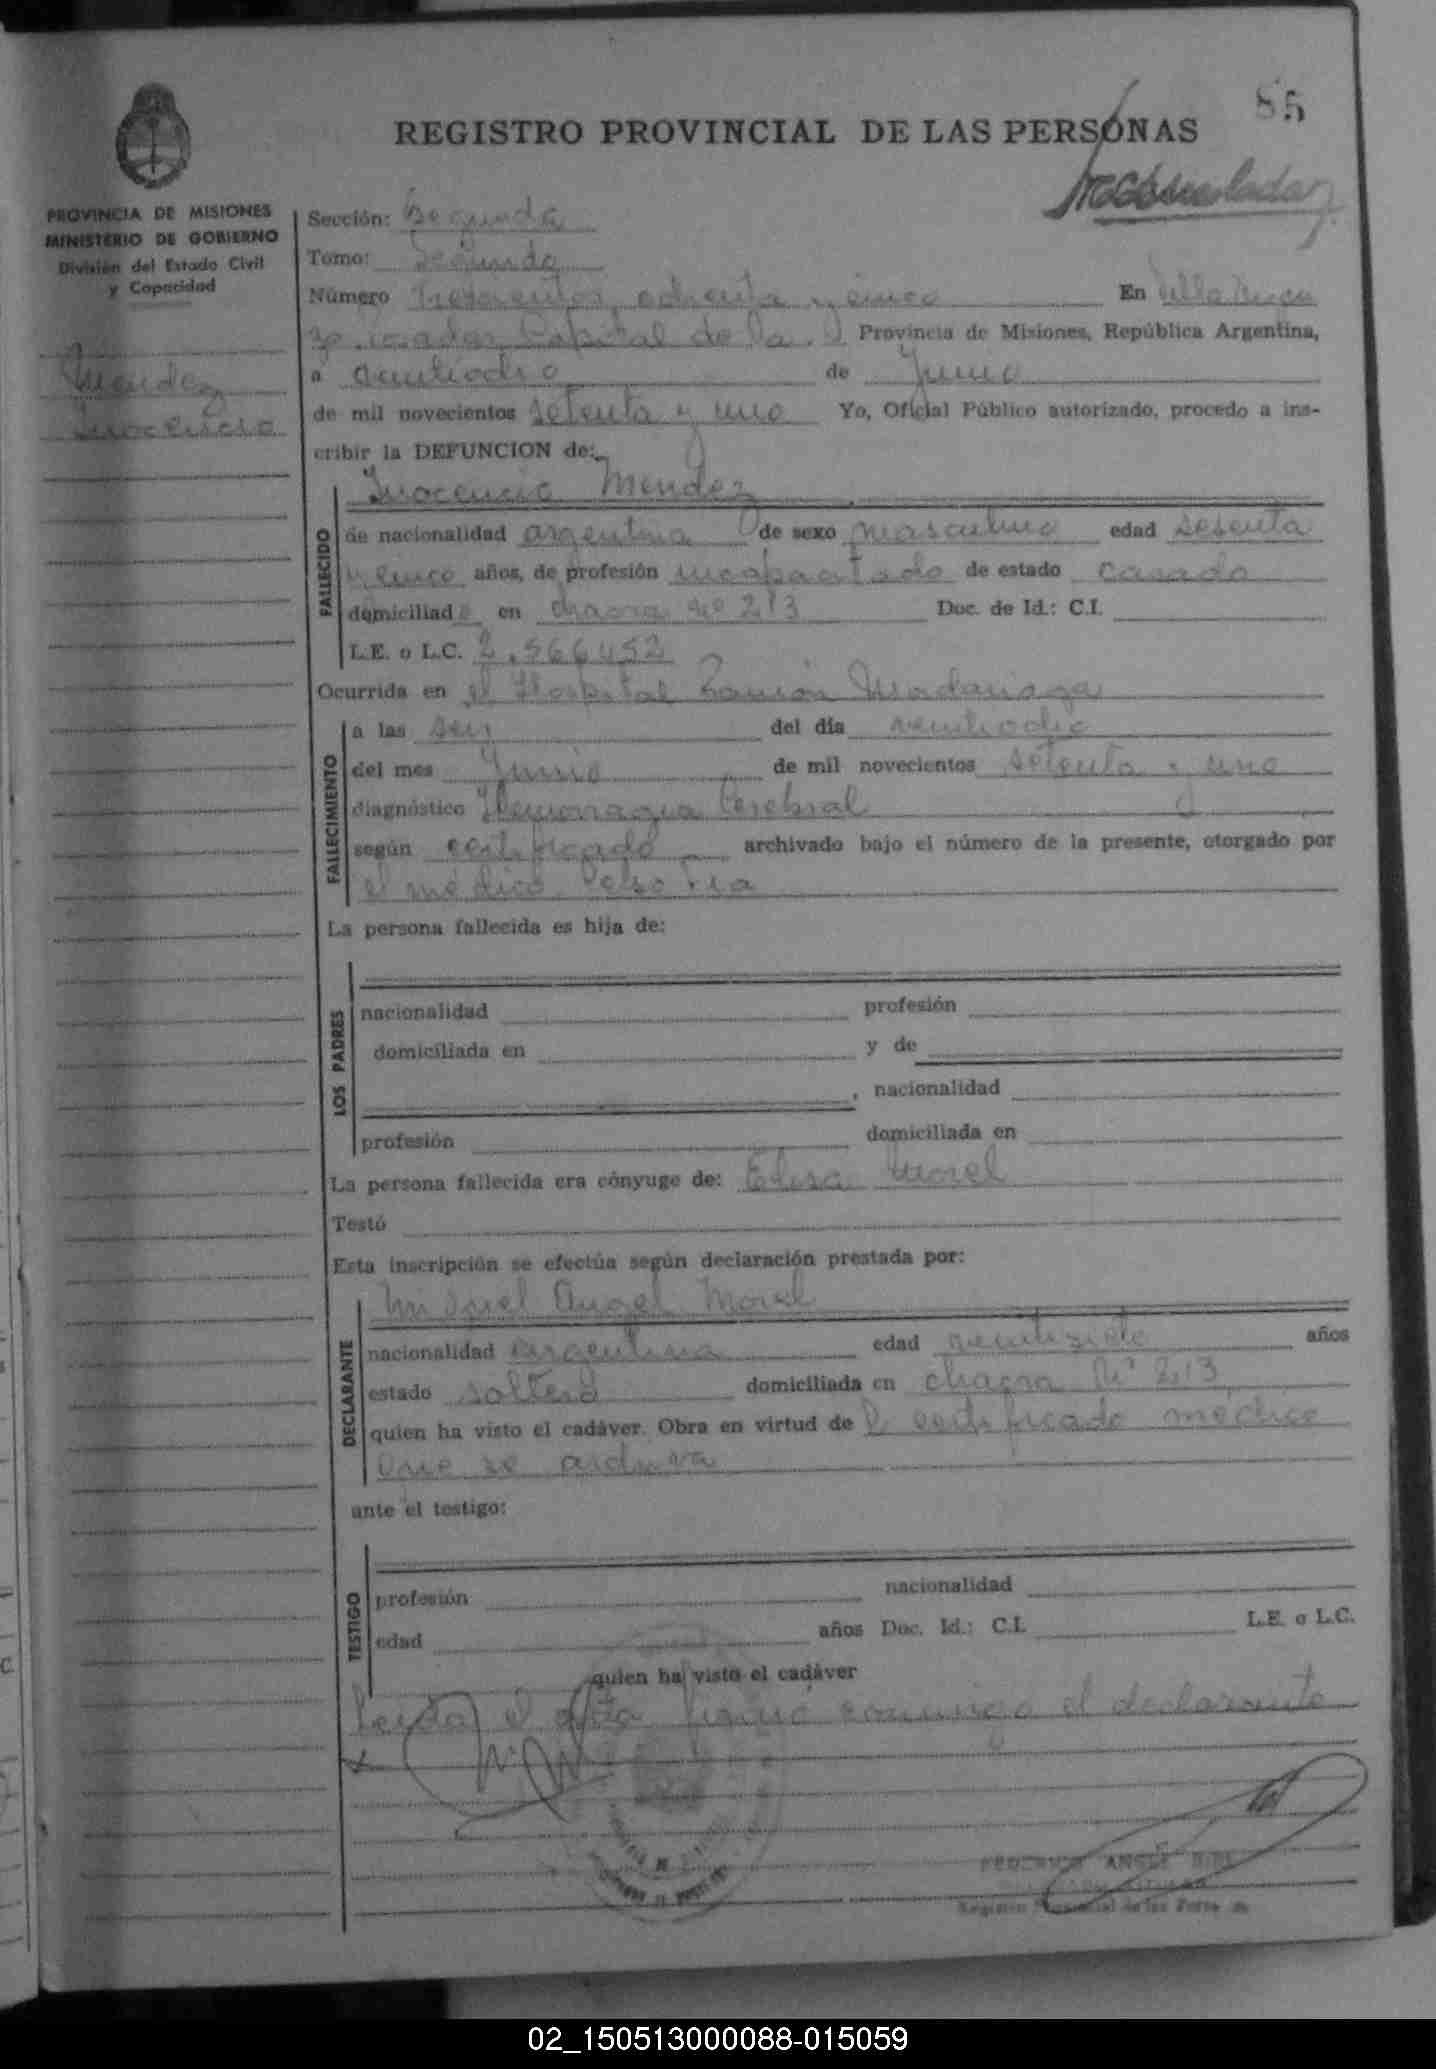 85
REGISTRO PROVINCIAL DE LAS PERSONAS
PROVINCIA DE MISIONES
MINISTERIO DE GOBIERNO
División del Estado Civil
y Capacidad
Mendez
Inocencio
Sección: Segunda
Tomo: Segundo
Número Trescientos ochenta y cinco En Villa
Posadas Capital de la Provincia de Misiones, República Argentina,
a veintiocho de Junio
de mil novecientos setenta y uno Yo, Oficial Público autorizado, procedo a ins-
cribir la DEFUNCION de:
Inocencio Mendez
FALLECIDO
de nacionalidad argentina de sexo masculino edad sesenta
y cinco años, de profesión incapacitado de estado casado
domiciliado en chacra nº 213 Doc. de Id.: C.I.
L.E. o L.C. 2.566452
Ocurrida en el Hospital Ramón Madariaga
FALLECIMIENTO
a las seis del día veintiocho
del mes Junio de mil novecientos setenta y uno
diagnóstico Hemorragia Cerebral
según certificado archivado bajo el número de la presente, otorgado por
el médico Celso
La persona fallecida es hija de:
LOS PADRES
nacionalidad profesión
domiciliada en y de
, nacionalidad
profesión domiciliada en
La persona fallecida era cónyuge de: Elisa Morel
Testó
Esta inscripción se efectúa según declaración prestada por:
DECLARANTE
Miguel Angel Morel
nacionalidad argentina edad veintisiete años
estado soltero domiciliada en chacra Nº 213
quien ha visto el cadáver. Obra en virtud de el certificado médico
que se archiva
ante el testigo:
TESTIGO
profesión nacionalidad
edad años Doc. Id.: C.I. L.E. o L.C.
quien ha visto el cadáver
Leida el acta firma conmigo el declarante
FEDERICO ANGEL
Registro Provincial de las Personas
02_150513000088-015059